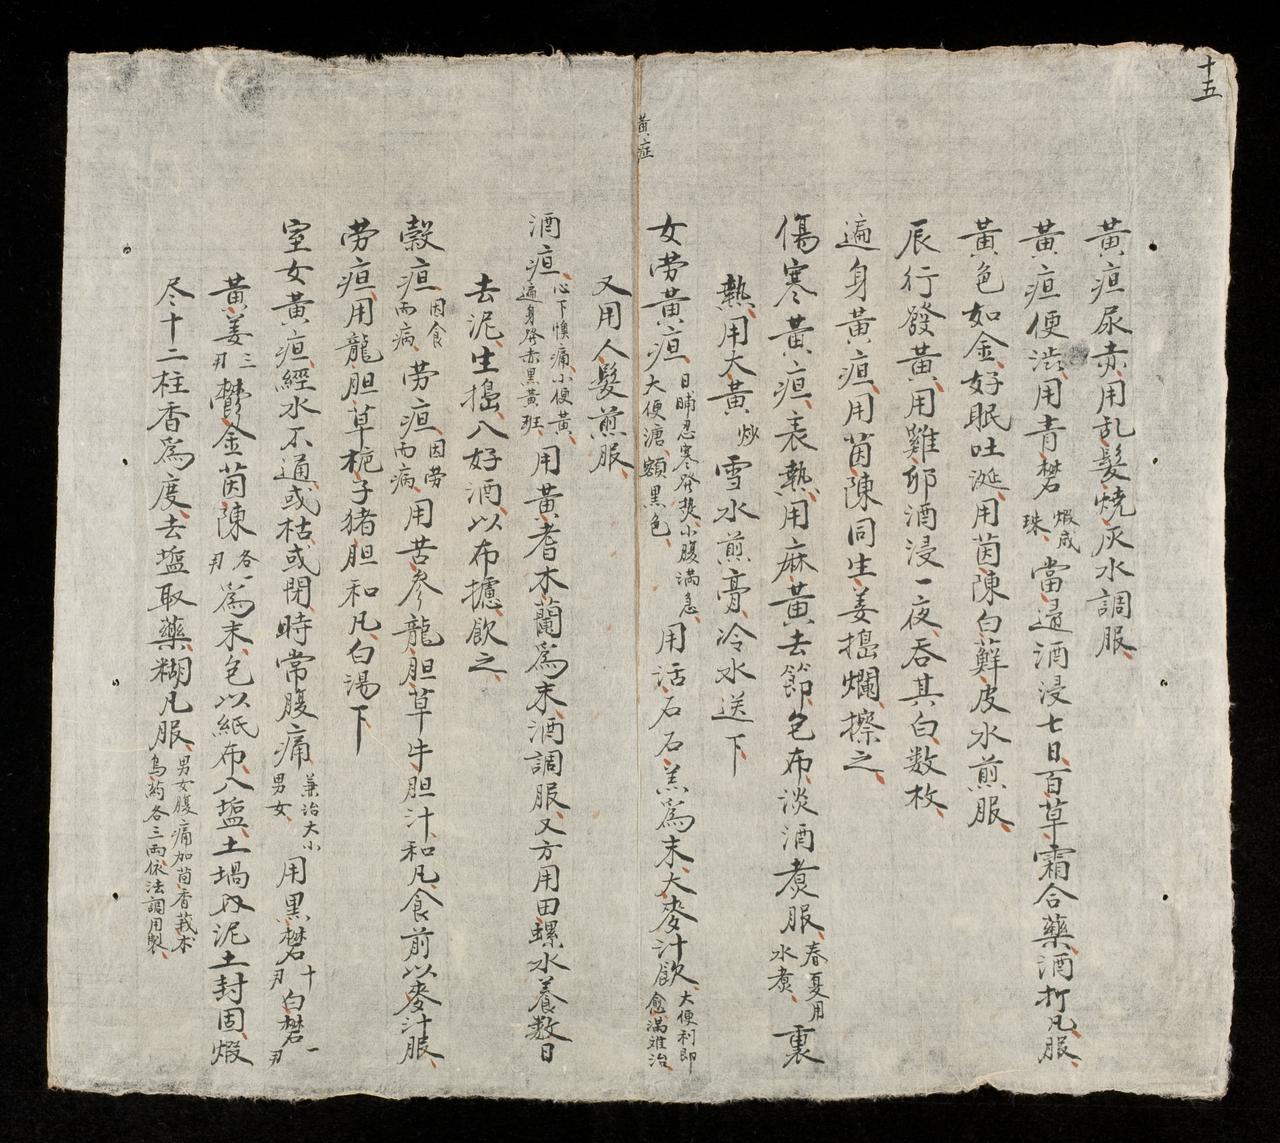 十五
黃疸尿赤用乱髮燒灰水調服
黃疸便澁用青礬煅成珠當道酒浸七日百草霜合藥酒打凡服
黃色如金好眠吐涎用茵陳白蘚皮水煎服
辰行發黃用雞卵酒浸一夜吞其白数枚
遍身黃疸用茵陳同生姜搗爛擦之
傷寒黃疸表熱用麻黃去節包布淡酒煮服春夏用水煮裏
熱用大黃炒雪水煎膏冷水送下
黃症
女劳黃疸日晡忍寒發熱小腹满急大便溏額黑色用活石石羔為末大麥汁飲大便利即愈满难治
又用人髮煎服
酒疸心下懊痛小便黃遍身發赤黑黃班用黃耆木蘭為末酒調服又方用田螺水養数日
去泥生搗入好酒以布攄飲之
穀疸因食而病劳疸因劳而病用苦參龍胆草牛胆汁和凡食前以麥汁服
劳疸用龍胆草梔子猪胆和凡白湯下
室女黃疸經水不通或枯或閉時常腹痛兼治大小男女用黑礬十刄白礬一刄
黃姜三刄欝金茵陳各一刄為末包以紙布入塩土堝內泥土封固煅
尽十二柱香為度去塩取藥糊凡服男女腹痛加茴香莪朮烏药各三両依法調用製